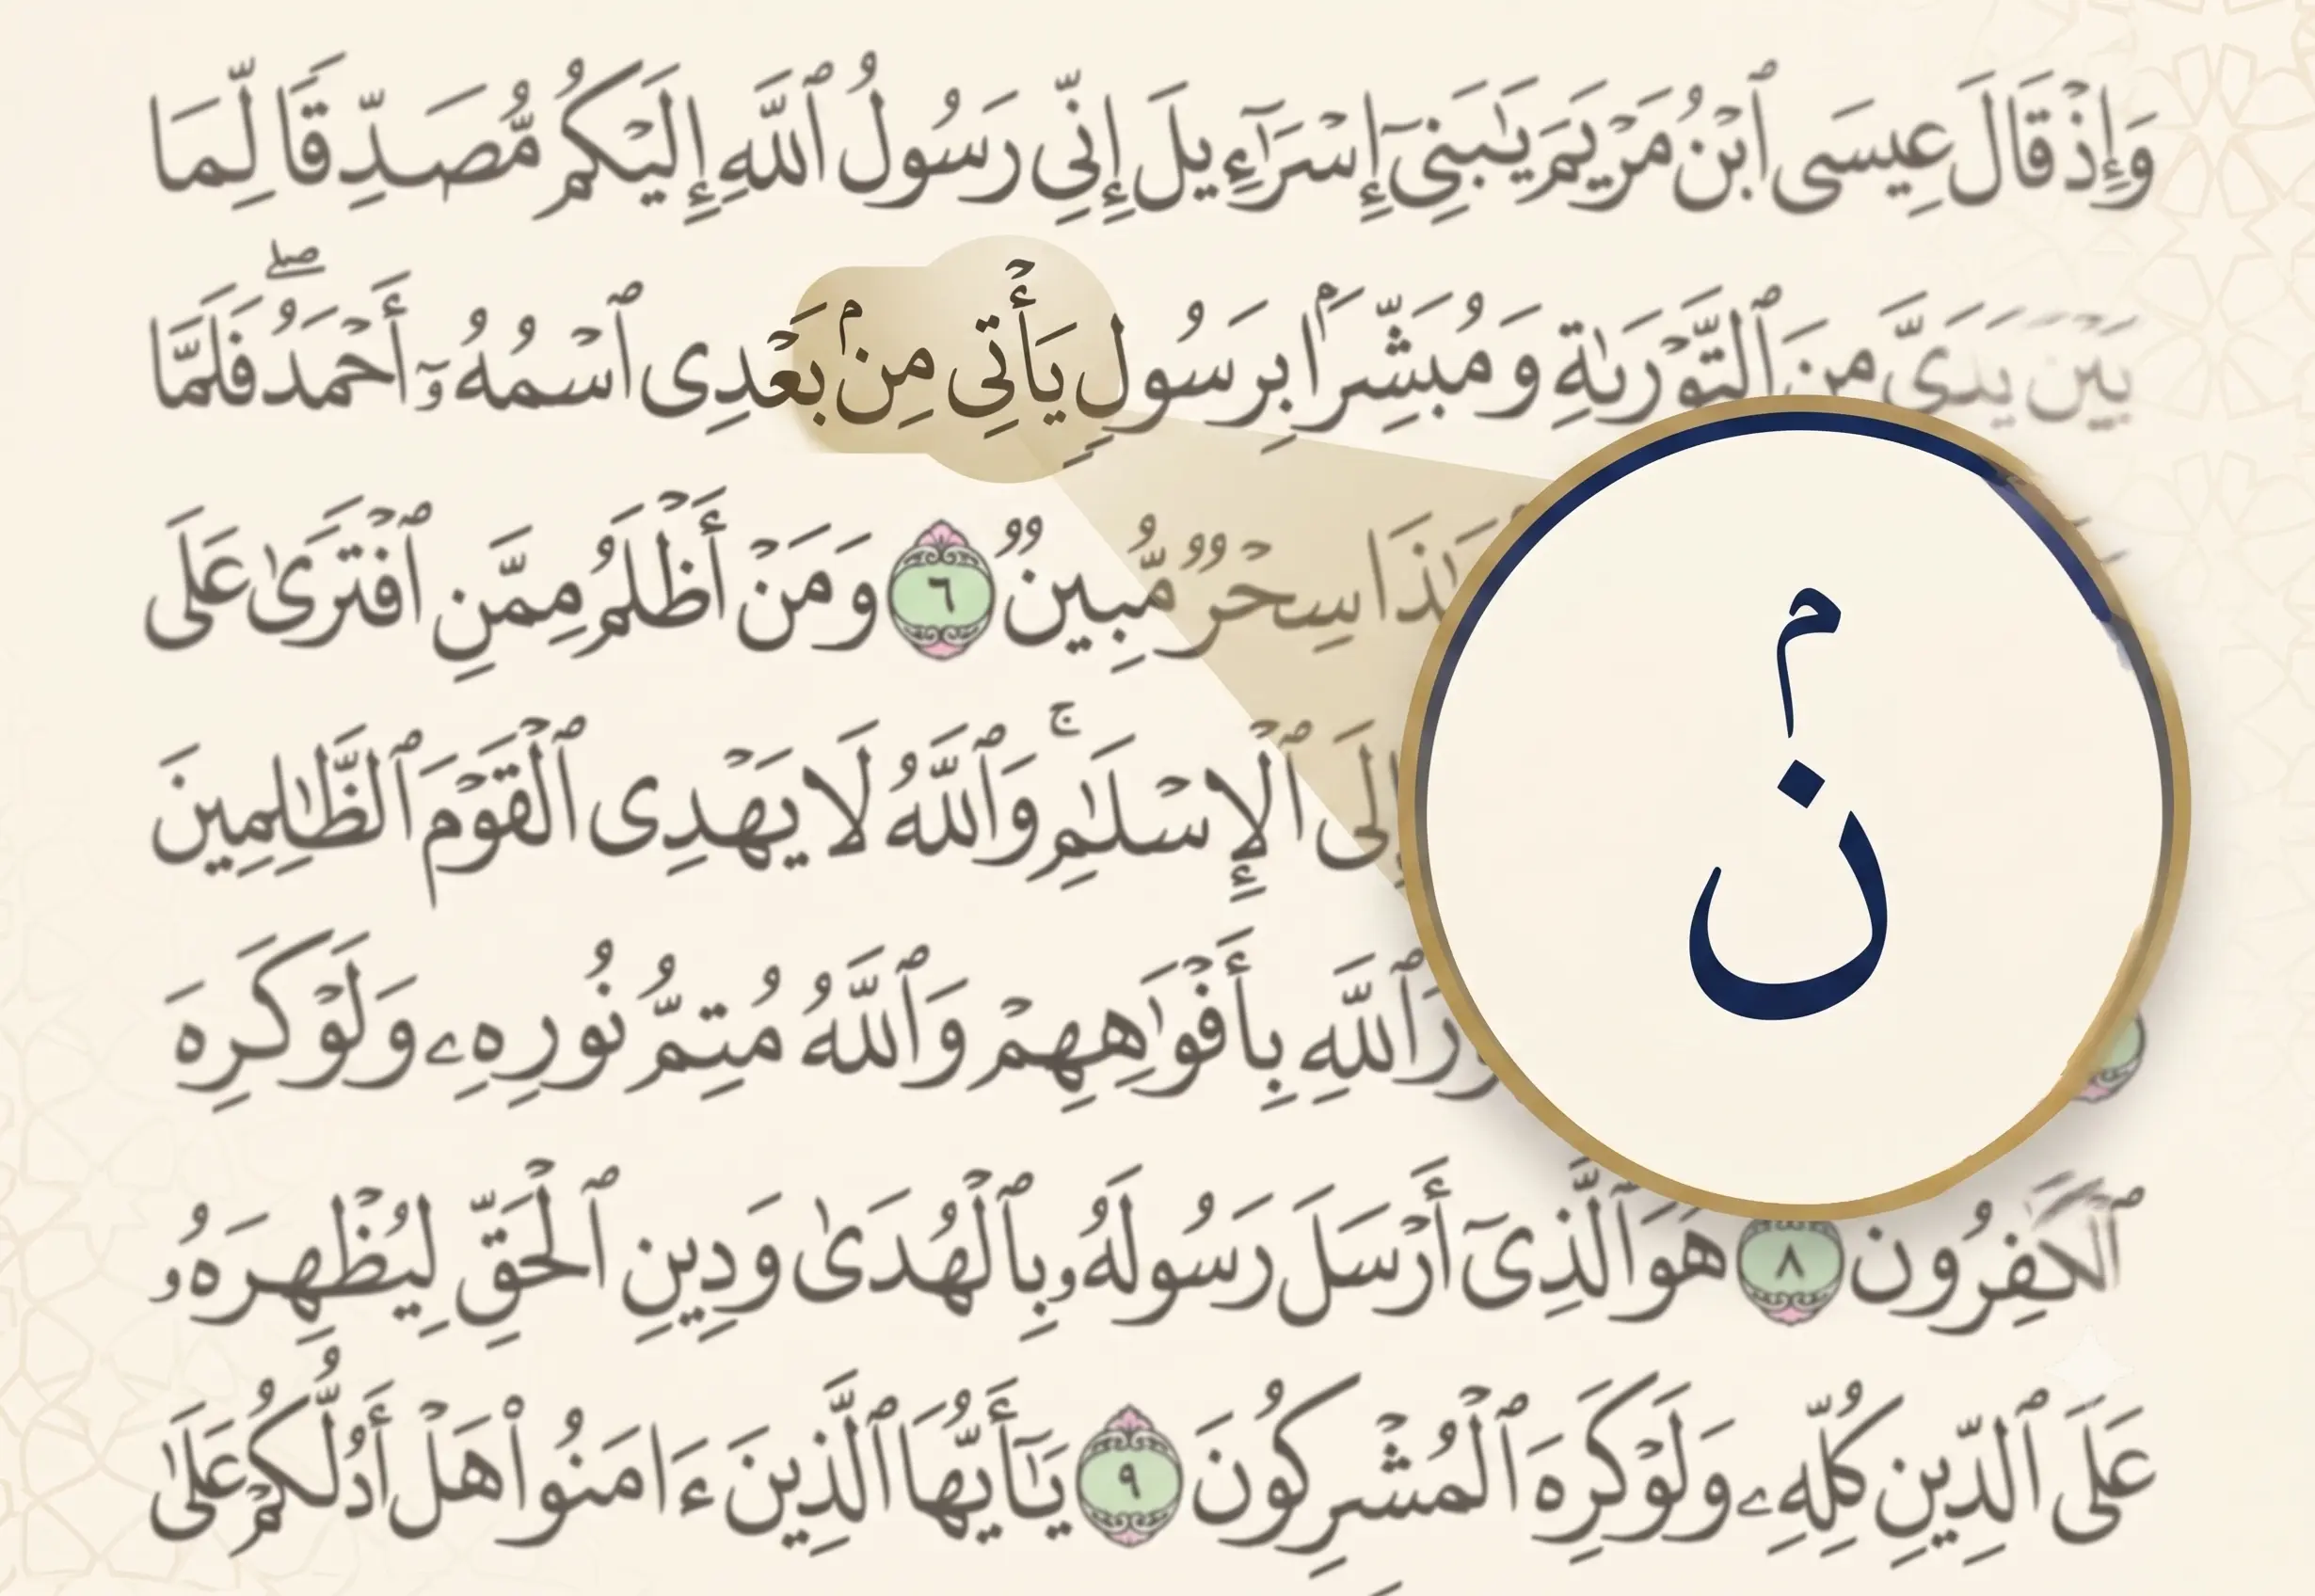 وَإِذْ قَالَ عِيسَى ٱبْنُ مَرْيَمَ يَٰبَنِىٓ إِسْرَٰٓءِيلَ إِنِّى رَسُولُ ٱللَّهِ إِلَيْكُم مُّصَدِّقًا لِّمَا
بَيْنَ يَدَىَّ مِنَ ٱلتَّوْرَىٰةِ وَمُبَشِّرًۢا بِرَسُولٍ يَأْتِى مِنۢ بَعْدِى ٱسْمُهُۥٓ أَحْمَدُ ۖ فَلَمَّا
سِحْرٌ مُّبِينٌ ٦ وَمَنْ أَظْلَمُ مِمَّنِ ٱفْتَرَىٰ عَلَى
إِلَى ٱلْإِسْلَٰمِ ۚ وَٱللَّهُ لَا يَهْدِى ٱلْقَوْمَ ٱلظَّٰلِمِينَ
ٱللَّهِ بِأَفْوَٰهِهِمْ وَٱللَّهُ مُتِمُّ نُورِهِۦ وَلَوْ كَرِهَ
ٱلْكَٰفِرُون ٨ هُوَ ٱلَّذِىٓ أَرْسَلَ رَسُولَهُۥ بِٱلْهُدَىٰ وَدِينِ ٱلْحَقِّ لِيُظْهِرَهُۥ
عَلَى ٱلدِّينِ كُلِّهِۦ وَلَوْ كَرِهَ ٱلْمُشْرِكُونَ ٩ يَٰٓأَيُّهَا ٱلَّذِينَ ءَامَنُوا۟ هَلْ أَدُلُّكُمْ عَلَىٰ
نۢ